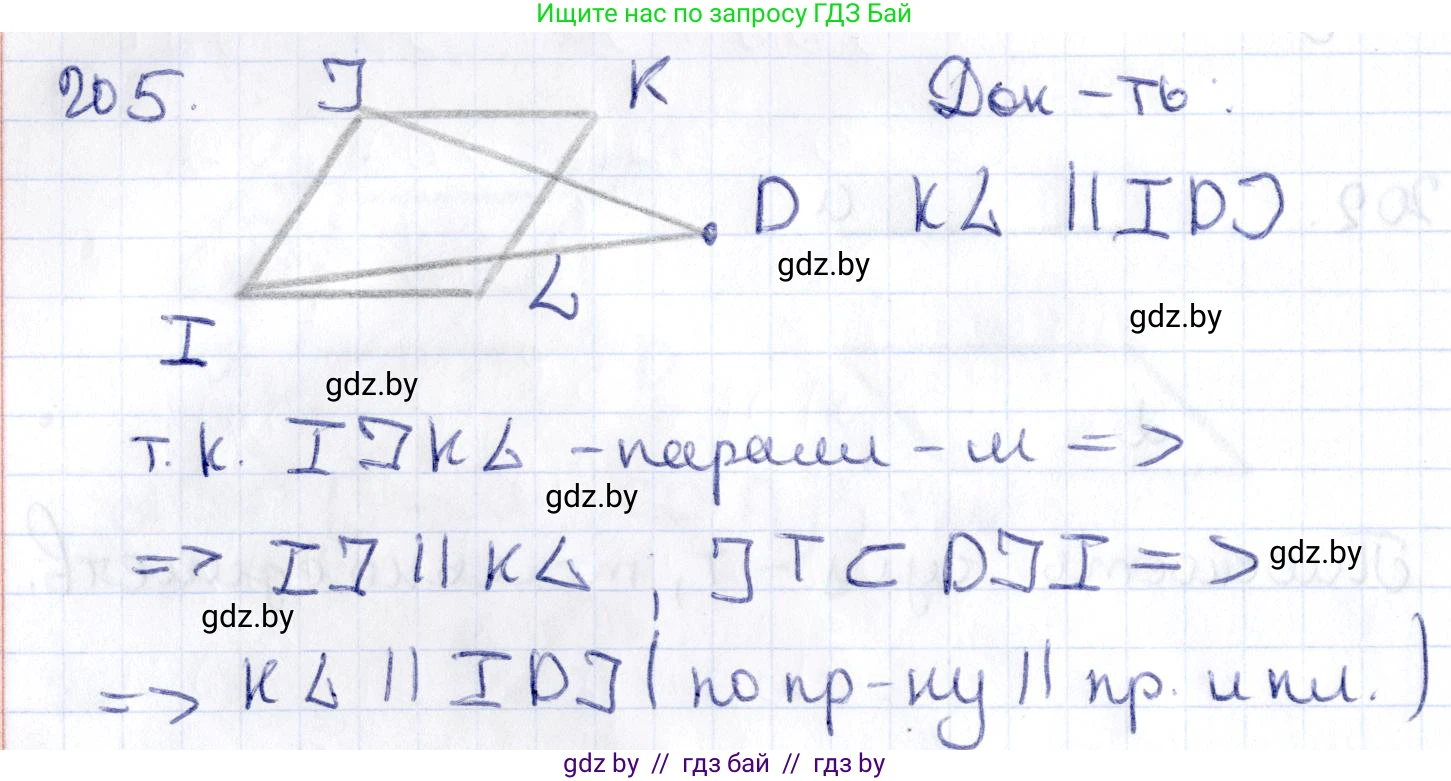 Ищите нас по запросу ГДЗ Бай
205. J K Док-ть:
D KL || IDJ
gdz.by
L
gdz.by
I
gdz.by
т.к. IJKL - паралл-м =>
gdz.by
=> IJ || KL ; JI ⊂ DJI => gdz.by
gdz.by
=> KL || IDJ (по пр-ку || пр. и пл.)
gdz.by // гдз бай // гдз by